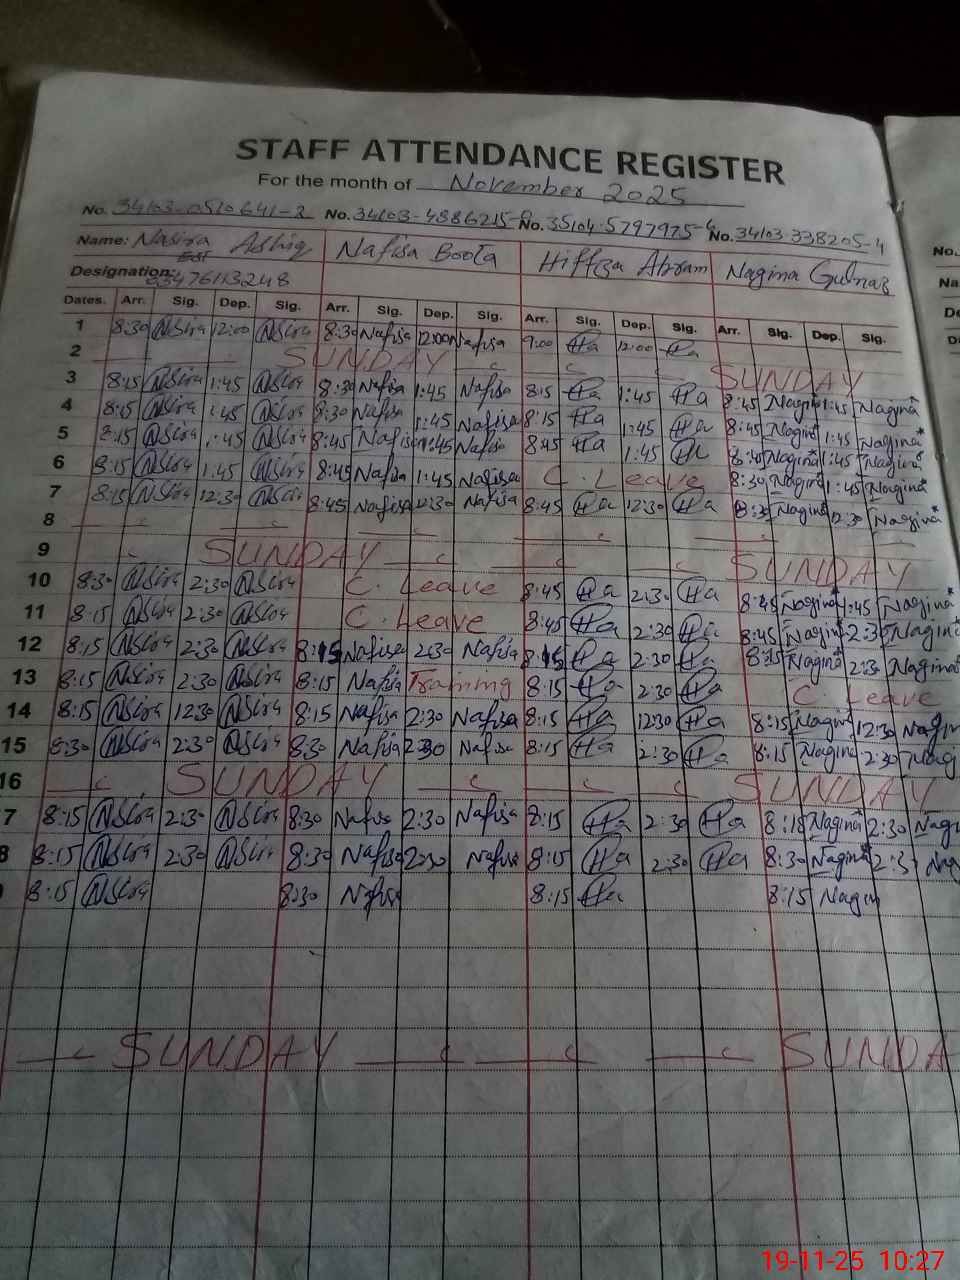 STAFF ATTENDANCE REGISTER
For the month of November 2025
No. 34103-0510641-2 No. 34103-4886215- No. 35104-5797975- No. 34103-338205-4
Name: Nasira Ashiq Nafisa Boota Hiffza Akram Nagina Gulnaz
Designation: EST
03476113248
Dates. Arr. Sig. Dep. Sig. Arr. Sig. Dep. Sig. Arr. Sig. Dep. Sig. Arr. Sig. Dep. Sig.
1 8:30 NSira 12:00 NSira 8:30 Nafisa 12:00 Nafisa 9:00 Ha 12:00 Ha
2 SUNDAY SUNDAY
3 8:15 NSira 1:45 NSira 8:30 Nafisa 1:45 Nafisa 8:15 Ha 1:45 Ha 8:45 Nagina 1:45 Nagina
4 8:15 NSira 1:45 NSira 8:30 Nafisa 1:45 Nafisa 8:15 Ha 1:45 Ha 8:45 Nagina 1:45 Nagina
5 8:15 NSira 1:45 NSira 8:45 Nafisa 1:45 Nafisa 8:45 Ha 1:45 Ha 8:45 Nagina 1:45 Nagina
6 8:15 NSira 1:45 NSira 8:45 Nafisa 1:45 Nafisa C. Leave 8:30 Nagina 1:45 Nagina
7 8:15 NSira 12:30 NSira 8:45 Nafisa 12:30 Nafisa 8:45 Ha 12:30 Ha Nagina 12:30 Nagina
8
9 SUNDAY SUNDAY
10 8:30 NSira 2:30 NSira C. Leave 8:45 Ha 2:30 Ha 8:45 Nagina 1:45 Nagina
11 8:15 NSira 2:30 NSira C. Leave 8:45 Ha 2:30 Ha 8:45 Nagina 2:30 Nagina
12 8:15 NSira 2:30 NSira 8:15 Nafisa 2:30 Nafisa 8:15 Ha 2:30 Ha 8:15 Nagina 2:30 Nagina
13 8:15 NSira 2:30 NSira 8:15 Nafisa Training 8:15 Ha 2:30 Ha C. Leave
14 8:15 NSira 12:30 NSira 8:15 Nafisa 2:30 Nafisa 8:15 Ha 12:30 Ha 8:15 Nagina 12:30 Nagin
15 8:30 NSira 2:30 NSira 8:30 Nafisa 2:30 Nafisa 8:15 Ha 2:30 Ha 8:15 Nagina 2:30 Nagi
16 SUNDAY SUNDAY
7 8:15 NSira 2:30 NSira 8:30 Nafisa 2:30 Nafisa 8:15 Ha 2:30 Ha 8:15 Nagina 2:30 Nagi
8 8:15 NSira 2:30 NSira 8:30 Nafisa 2:30 Nafisa 8:15 Ha 2:30 Ha 8:30 Nagina 2:3 Nag
8:15 NSira 8:30 Nafisa 8:15 Ha 8:15 Nagin
SUNDAY SUNDA
No.
Na
De
19-11-25 10:27